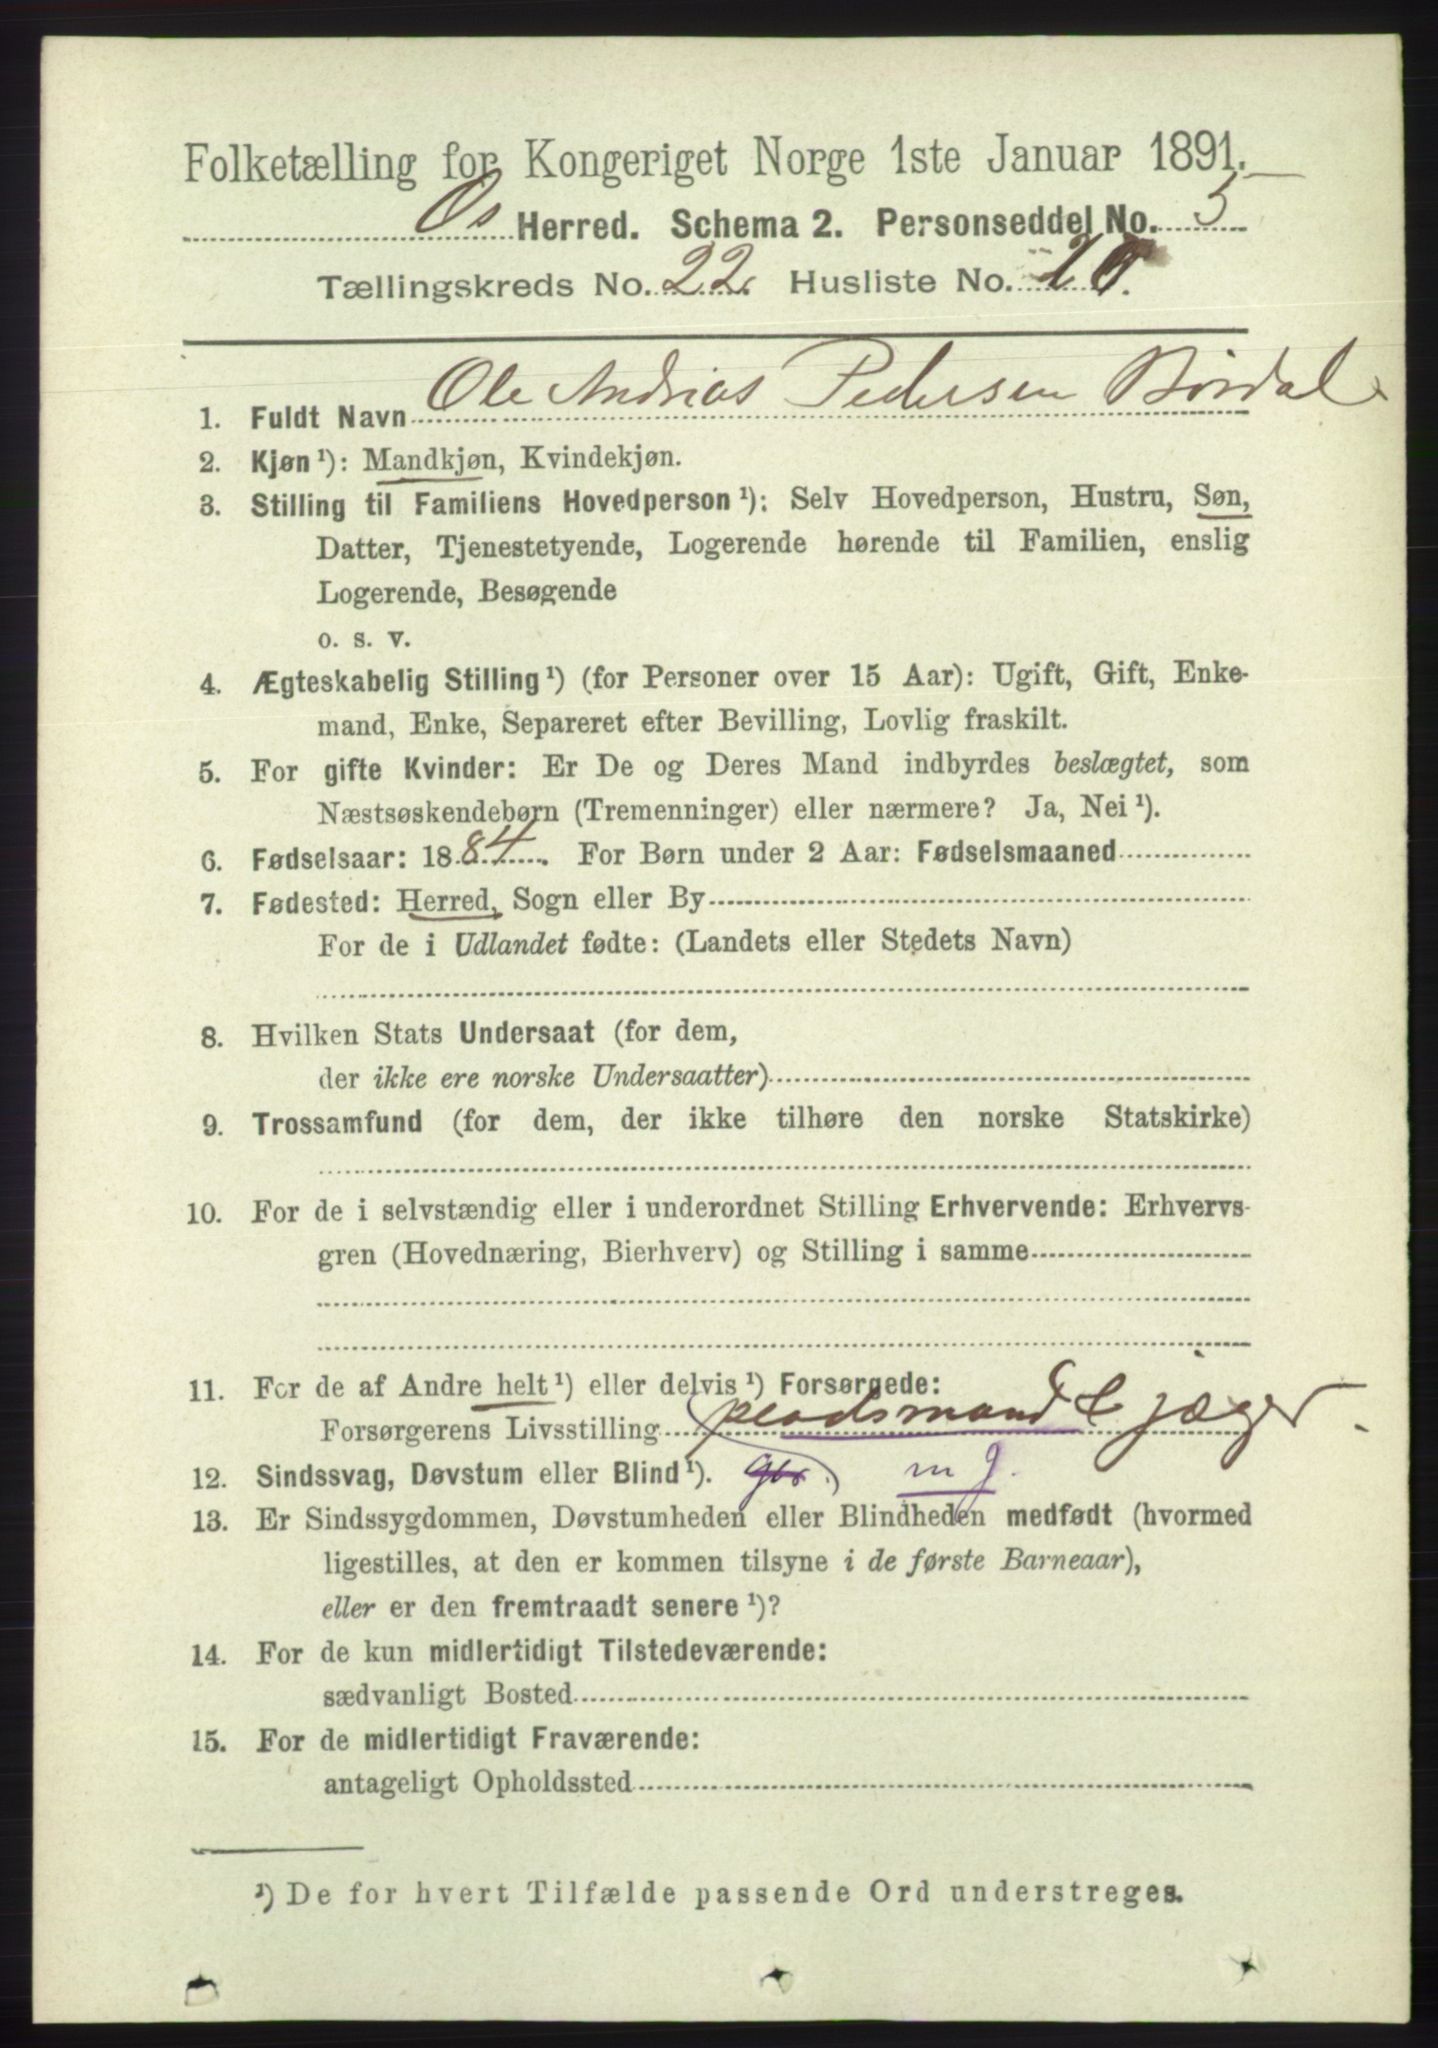 Folketælling for Kongeriget Norge 1ste Januar 1891.
Os Herred. Schema 2. Personseddel No. 5
Tællingskreds No. 22. Husliste No.
1. Fuldt Navn Ole Andrias Pedersen Børdal
2. Kjøn ¹): Mandkjøn, Kvindekjøn.
3. Stilling til Familiens Hovedperson ¹): Selv Hovedperson, Hustru, Søn,
Datter, Tjenestetyende, Logerende hørende til Familien, enslig
Logerende, Besøgende
o. s. v.
4. Ægteskabelig Stilling ¹) (for Personer over 15 Aar): Ugift, Gift, Enke-
mand, Enke, Separeret efter Bevilling, Lovlig fraskilt.
5. For gifte Kvinder: Er De og Deres Mand indbyrdes beslægtet, som
Næstsøskendebørn (Tremenninger) eller nærmere? Ja, Nei ¹).
6. Fødselsaar: 1884. For Børn under 2 Aar: Fødselsmaaned
7. Fødested: Herred, Sogn eller By
For de i Udlandet fødte: (Landets eller Stedets Navn)
8. Hvilken Stats Undersaat (for dem,
der ikke ere norske Undersaatter)
9. Trossamfund (for dem, der ikke tilhøre den norske Statskirke)
10. For de i selvstændig eller i underordnet Stilling Erhvervende: Erhvervs-
gren (Hovednæring, Bierhverv) og Stilling i samme
11. For de af Andre helt ¹) eller delvis ¹) Forsørgede:
Forsørgerens Livsstilling pladsmand & jæger.
12. Sindssvag, Døvstum eller Blind ¹). m g.
13. Er Sindssygdommen, Døvstumheden eller Blindheden medfødt (hvormed
ligestilles, at den er kommen tilsyne i de første Barneaar),
eller er den fremtraadt senere ¹)?
14. For de kun midlertidigt Tilstedeværende:
sædvanligt Bosted
15. For de midlertidigt Fraværende:
antageligt Opholdssted
¹) De for hvert Tilfælde passende Ord understreges.